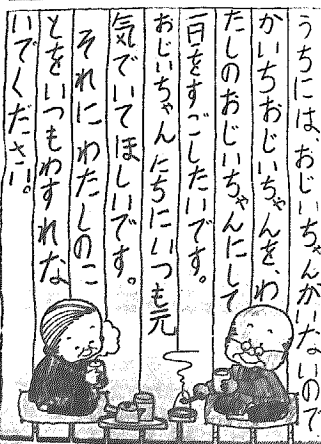 うちには、おじいちゃんがいないので、
かいちおじいちゃんを、わ
たしのおじいちゃんにして
一日をすごしたいです。
おじいちゃんたちにいつも元
気でいてほしいです。
それにわたしのこ
とをいつもわすれな
いでください。